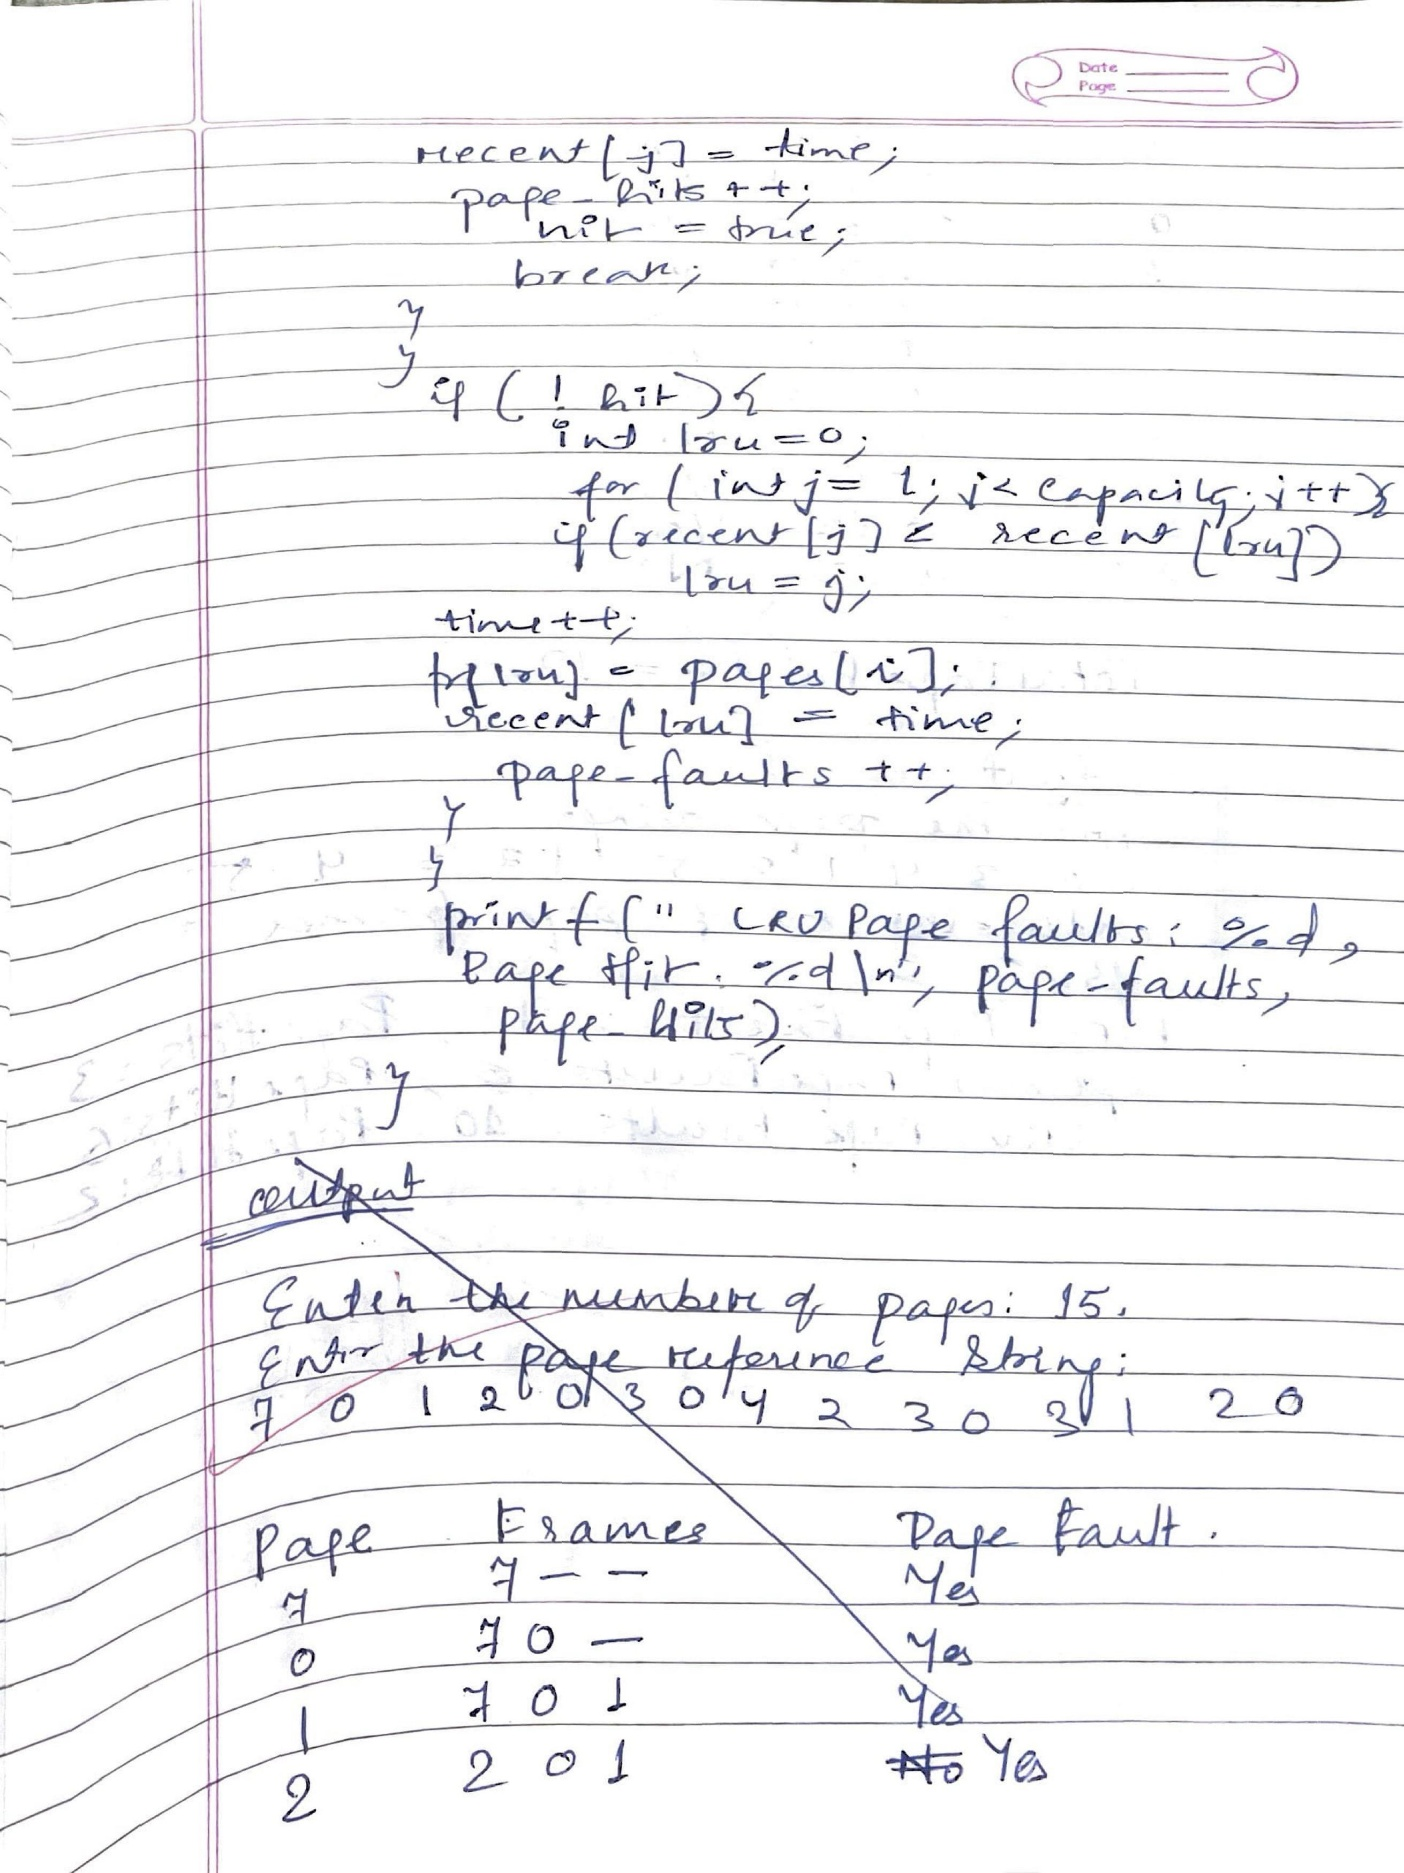 Date
Page
recent[j] = time;
page_hits ++;
hit = true;
break;
}
}
if (! hit) {
int lru=0;
for (int j= 1; j< capacity; j++){
if (recent[j] < recent[lru])
lru = j;
time++;
fr[lru] = pages[i];
recent[lru] = time;
page_faults ++;
}
}
printf(" LRU Page faults: %d,
Page Hit: %d\n", page_faults,
page_hits);
}
output
Enter the number of pages: 15.
Enter the page reference string:
7 0 1 2 0 3 0 4 2 3 0 3 1 2 0
Page Frames Page Fault.
7 7 - - Yes
0 7 0 - Yes
1 7 0 1 Yes
2 2 0 1 No Yes